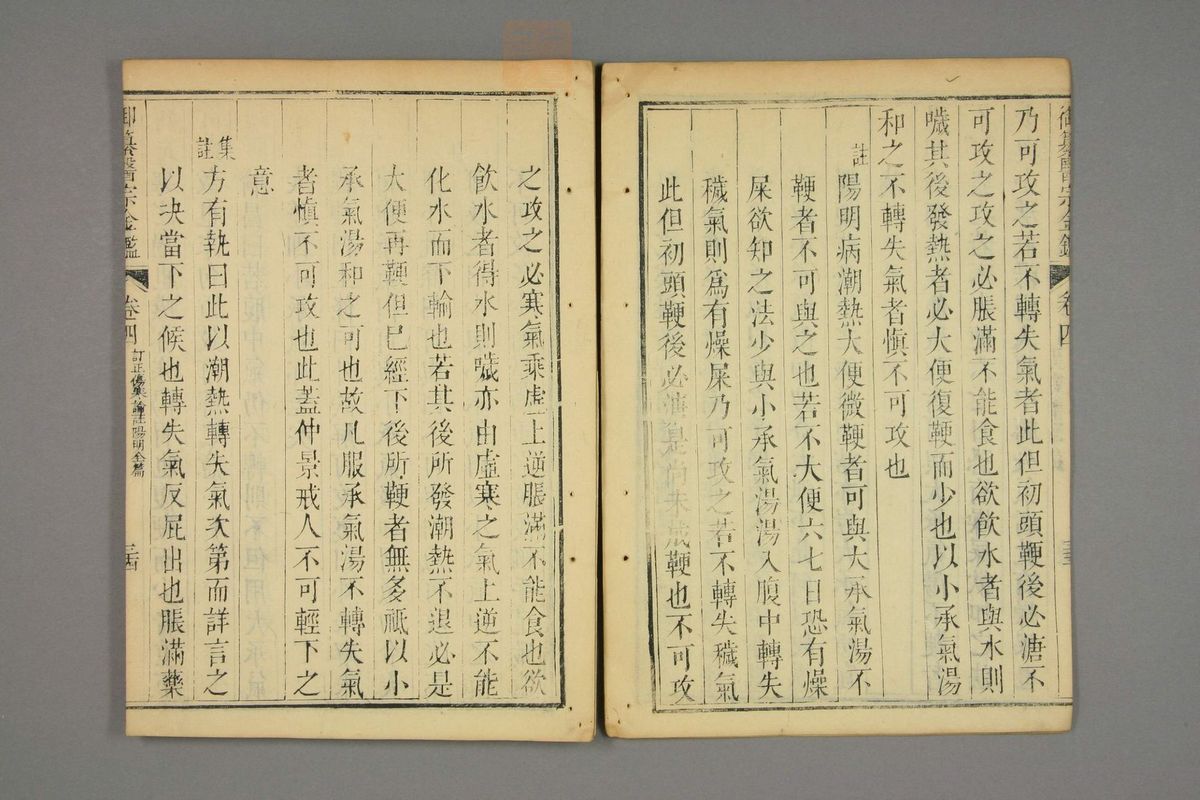 御纂醫宗金鑑
卷四
三三
乃可攻之若不轉失氣者此但初頭鞕後必溏不
可攻之攻之必脹滿不能食也欲飲水者與水則
噦其後發熱者必大便復鞕而少也以小承氣湯
和之不轉失氣者慎不可攻也
註
陽明病潮熱大便微鞕者可與大承氣湯不
鞕者不可與之也若不大便六七日恐有燥
屎欲知之法少與小承氣湯湯入腹中轉失
穢氣則爲有燥屎乃可攻之若不轉失穢氣
此但初頭鞕後必溏是尚未成鞕也不可攻
之攻之必寒氣乘虛上逆脹滿不能食也欲
飲水者得水則噦亦由虛寒之氣上逆不能
化水而下輸也若其後所發潮熱不退必是
大便再鞕但已經下後所鞕者無多祗以小
承氣湯和之可也故凡服承氣湯不轉失氣
者慎不可攻也此蓋仲景戒人不可輕下之
意
集註
方有執曰此以潮熱轉失氣次第而詳言之
以決當下之候也轉失氣反屁出也脹滿藥
御纂醫宗金鑑
卷四
訂正傷寒論註陽明全篇
三四